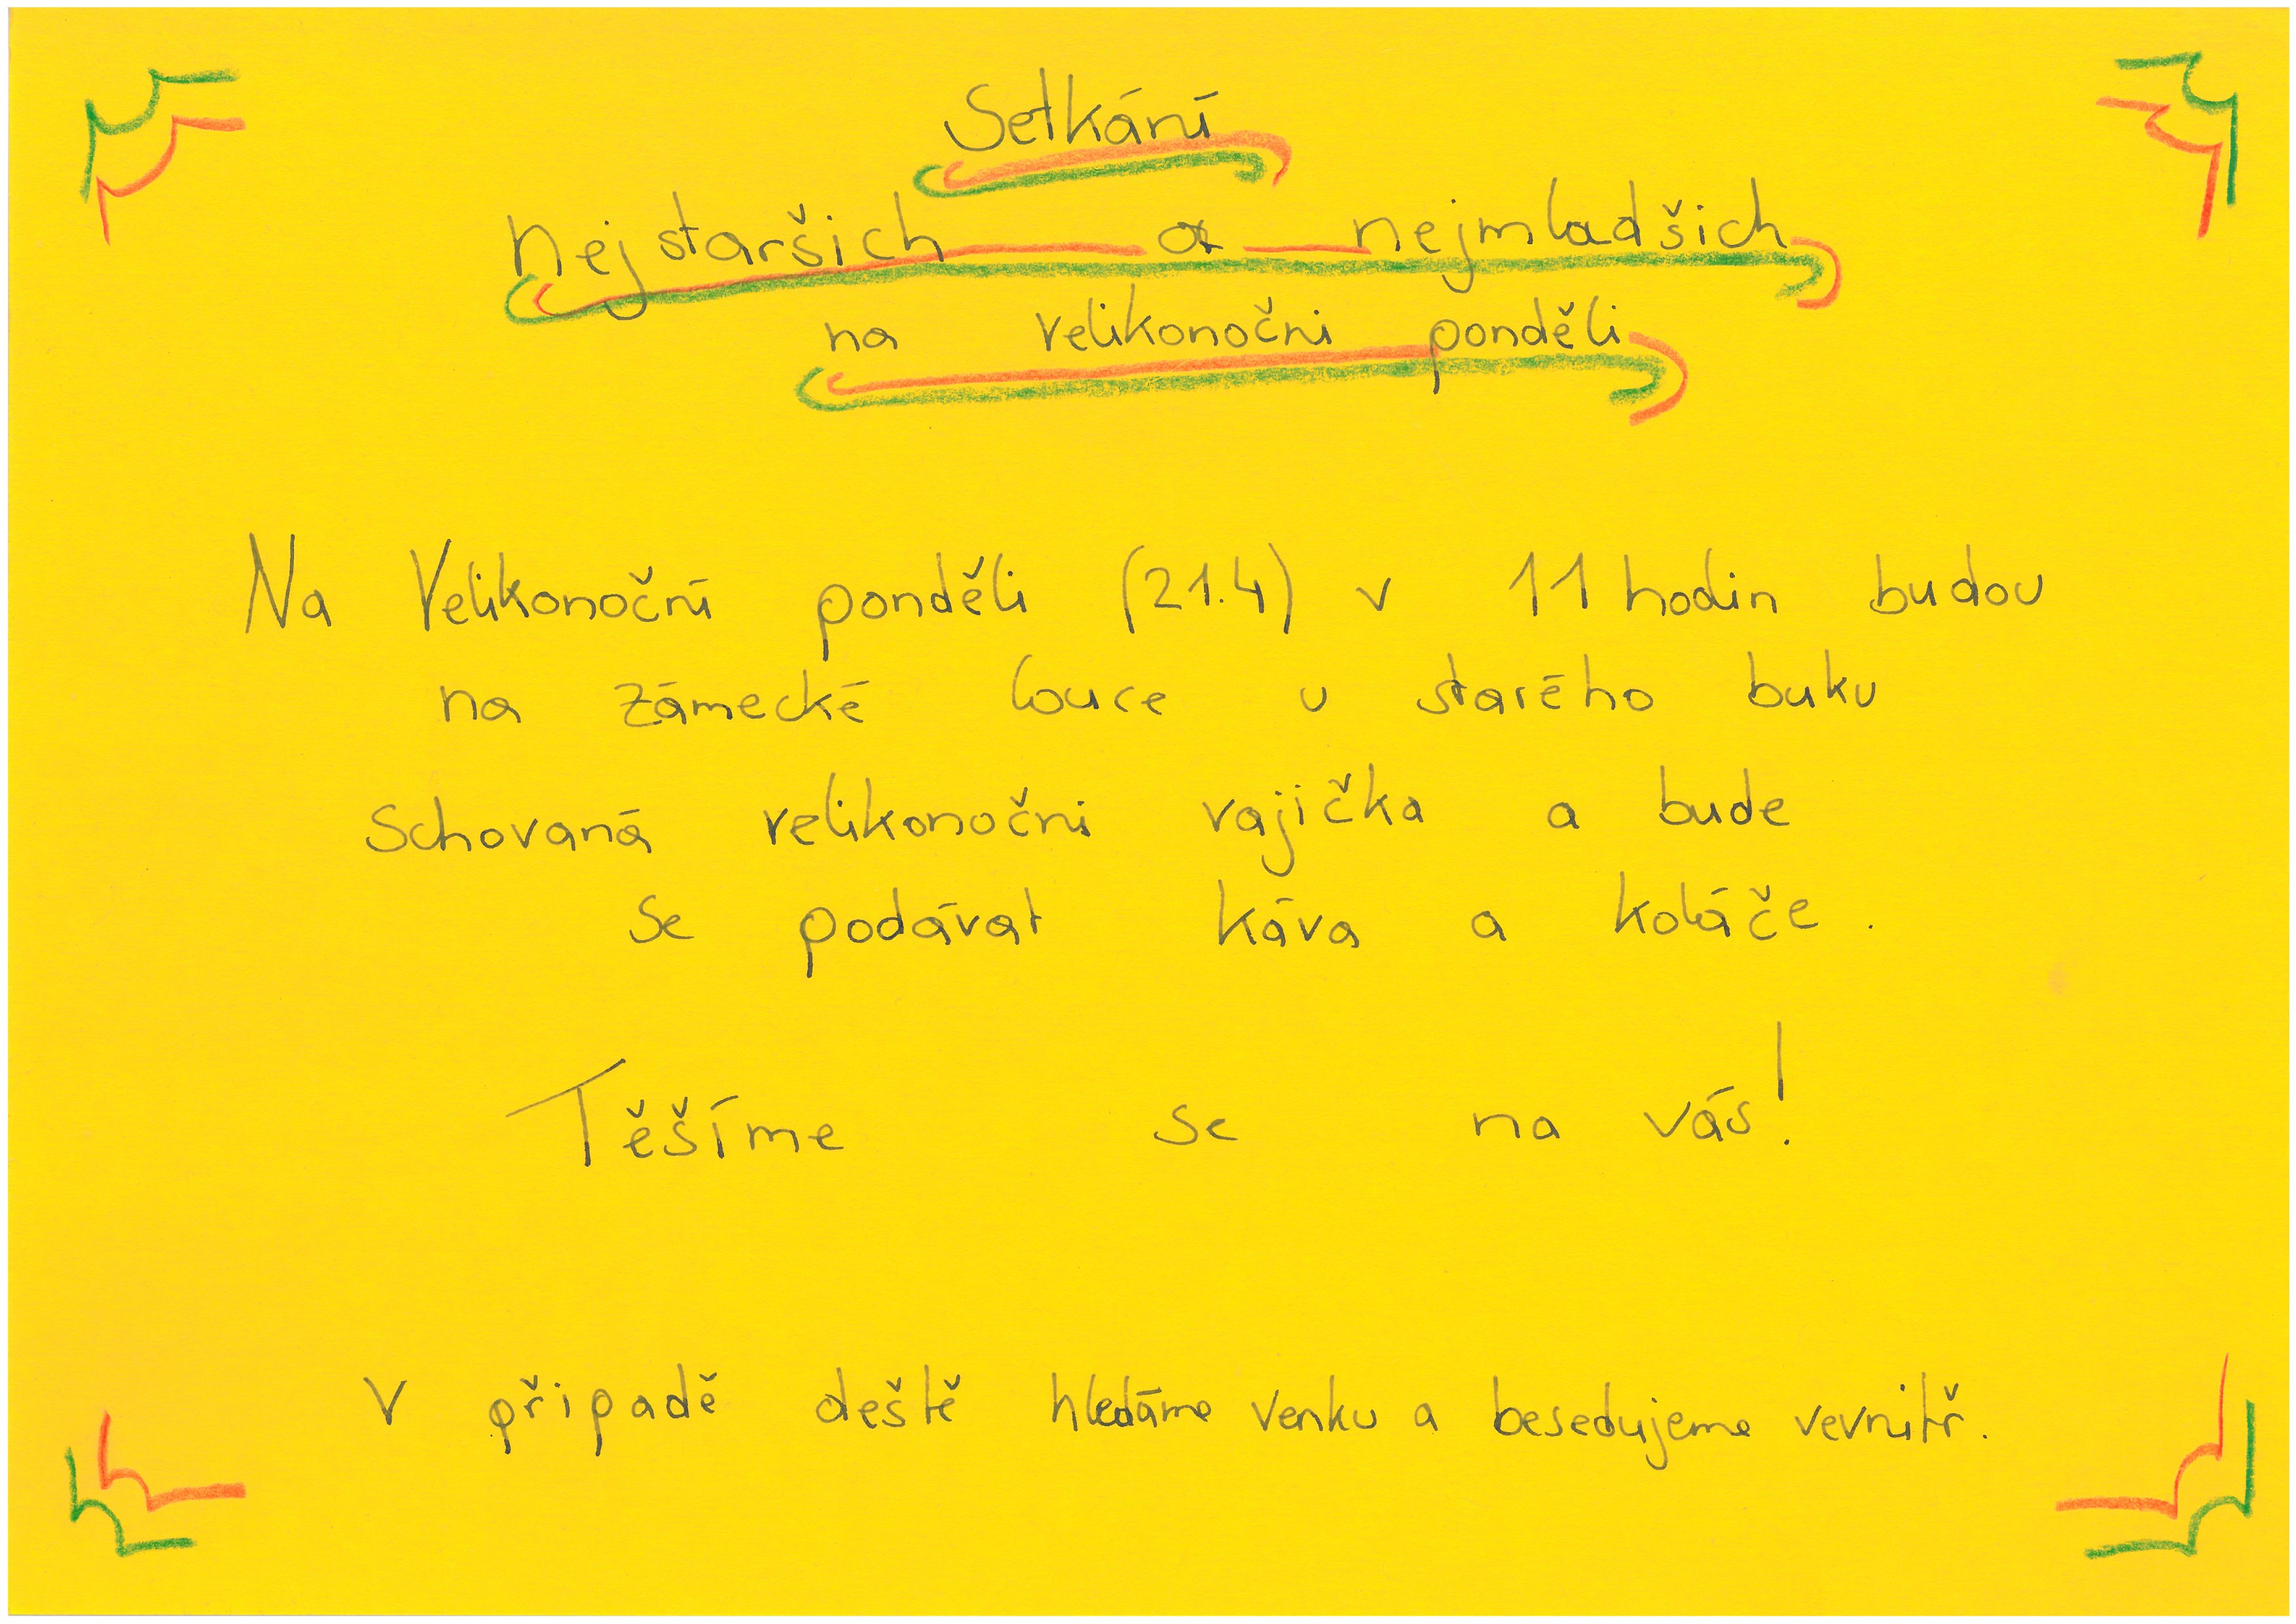 Setkání
nejstaršich a nejmladšich
na velikonočni ponděli
Na Velikonoční ponděli (21.4) v 11 hodin budou
na zámecké louce u starého buku
schovaná velikonočni vajička a bude
se podávat káva a koláče.
Těšíme se na vás!
V připadě deště hledáme venku a besedujeme vevnitř.